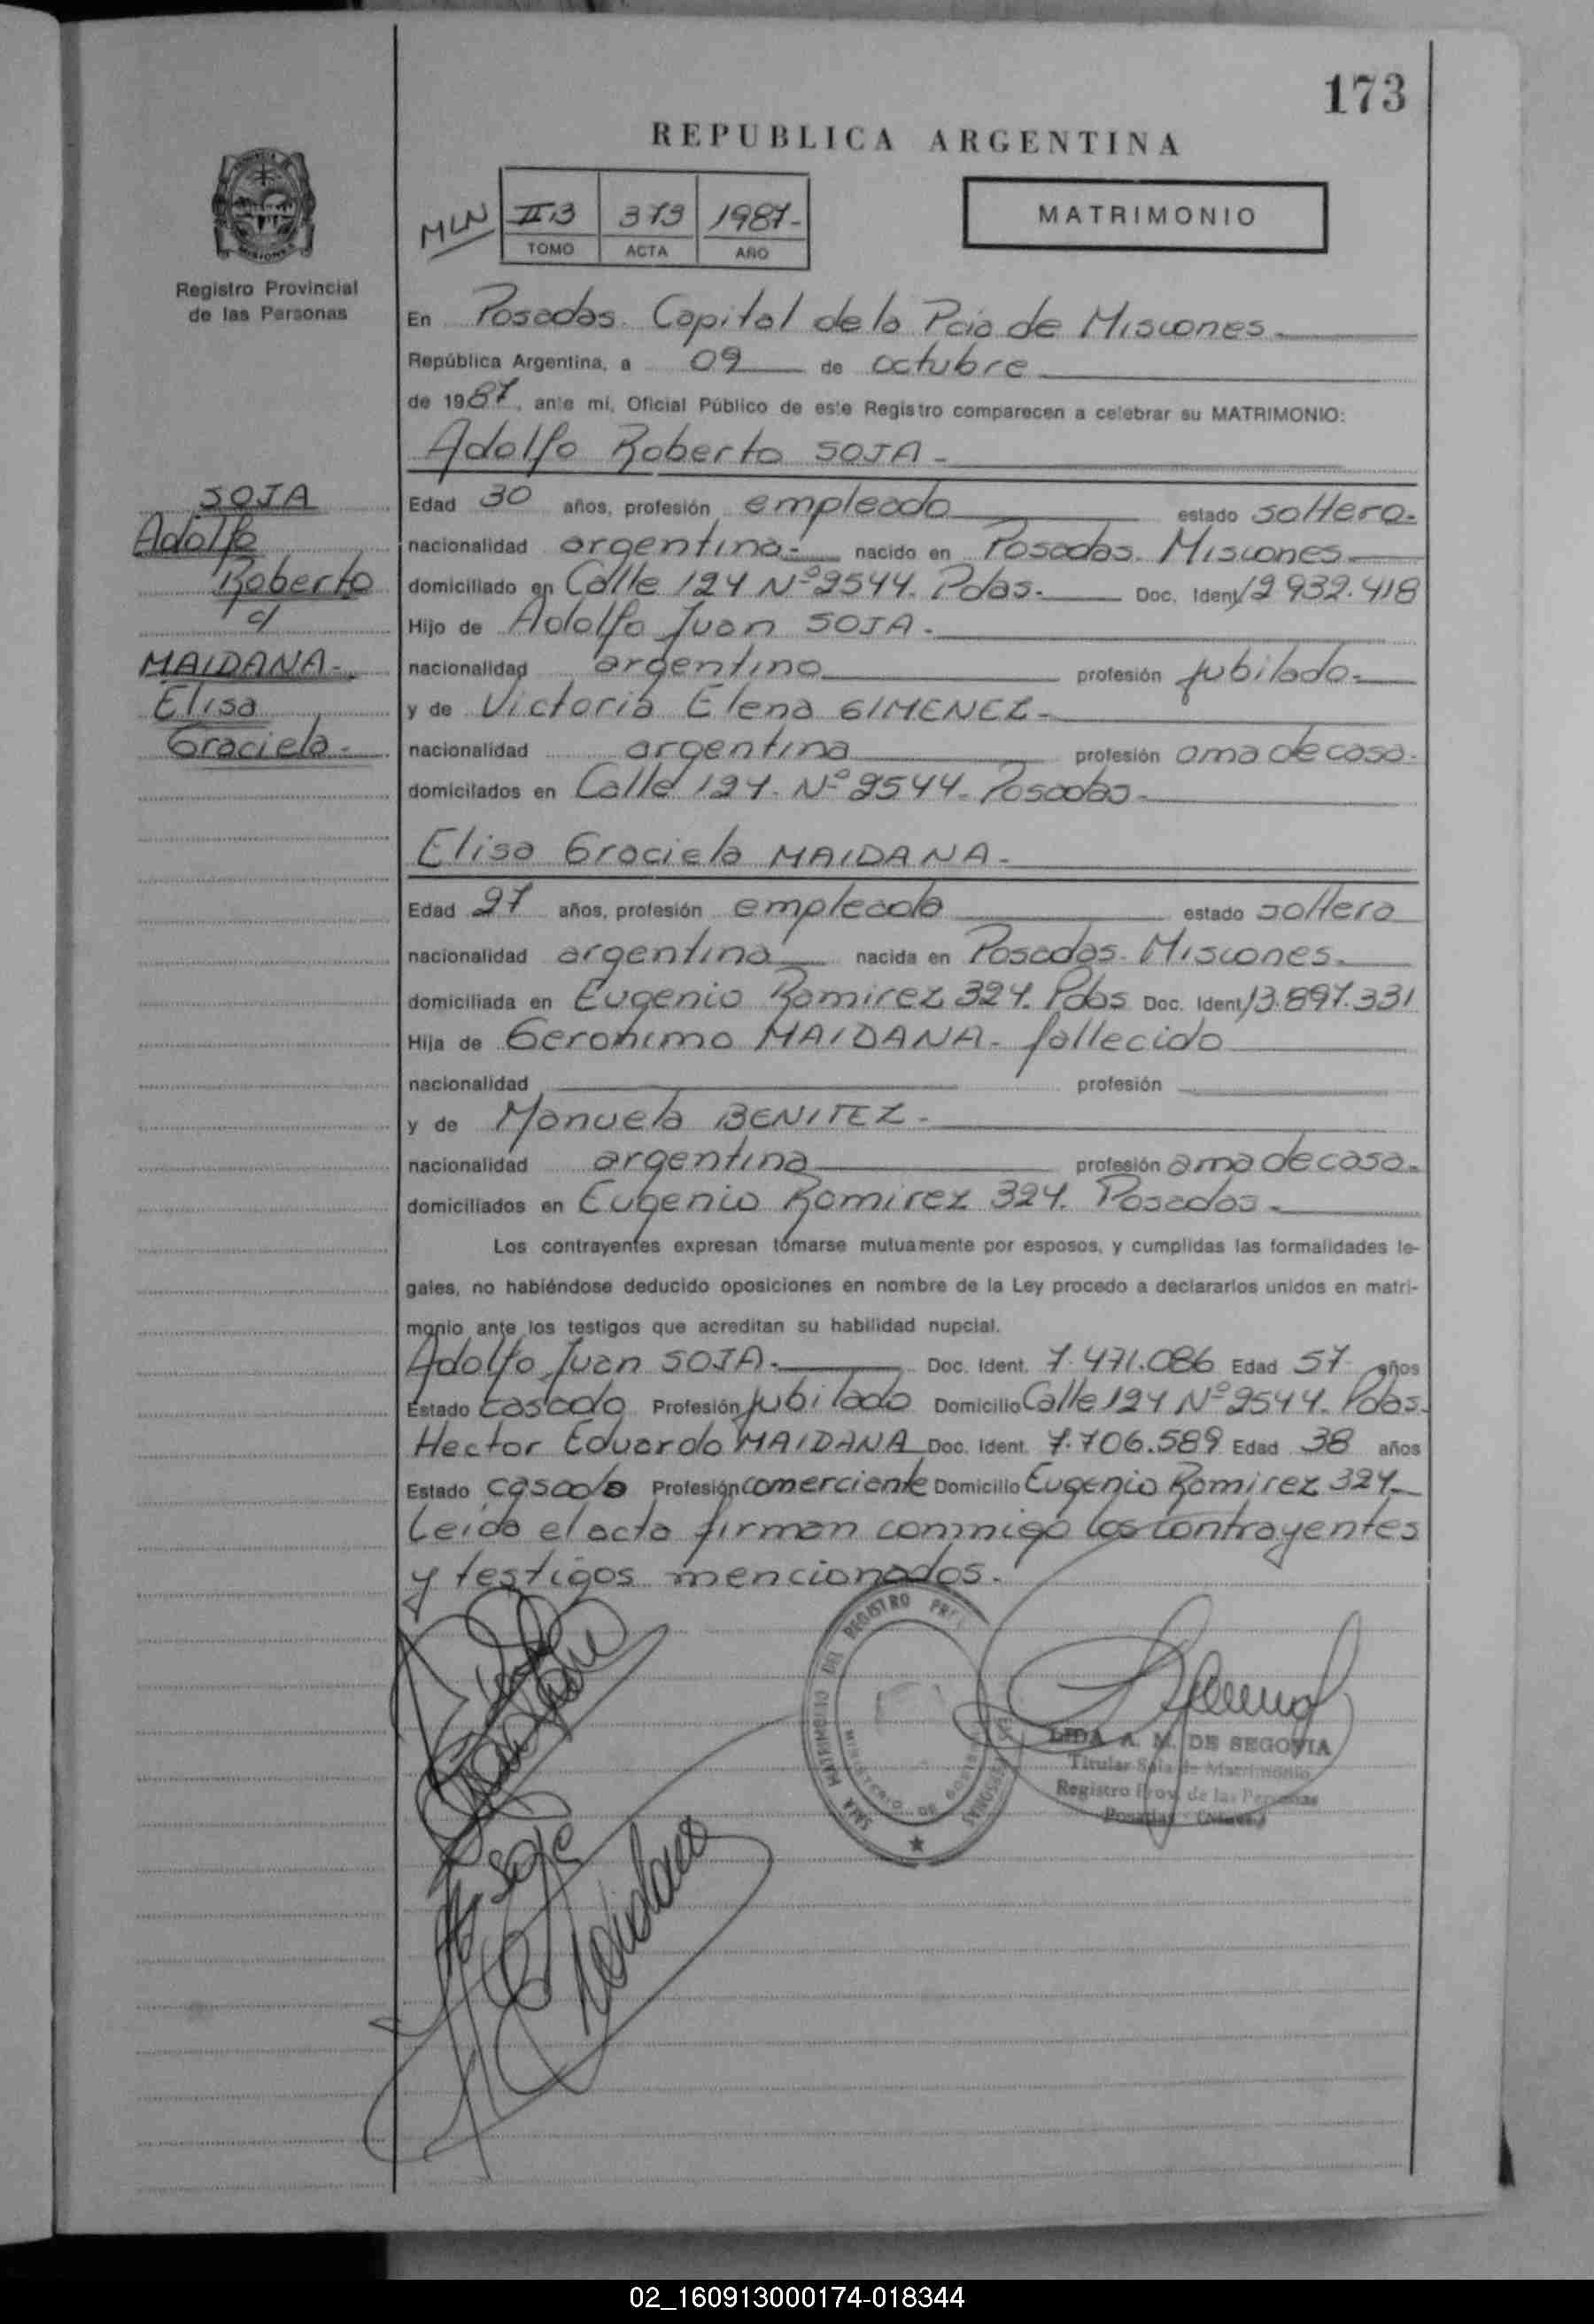 173
REPUBLICA ARGENTINA
MLN II B 373 1987-
TOMO ACTA AÑO
MATRIMONIO
Registro Provincial
de las Personas
En Posadas. Capital de la Pcia de Misiones.
República Argentina, a 09 de octubre
de 1987, ante mí, Oficial Público de este Registro comparecen a celebrar su MATRIMONIO:
Adolfo Roberto SOJA -
SOJA
Adolfo
Roberto
c/
MAIDANA -
Elisa
Graciela -
Edad 30 años, profesión empleado estado soltero.
nacionalidad argentina - nacido en Posadas. Misiones
domiciliado en Calle 124 Nº 2544. Pdas. Doc. Ident 12 932.418
Hijo de Adolfo Juan SOJA.
nacionalidad argentino profesión jubilado.
y de Victoria Elena GIMENEZ -
nacionalidad argentina profesión ama de casa.
domiciliados en Calle 124. Nº 2544. Posadas -
Elisa Graciela MAIDANA -
Edad 27 años, profesión empleada estado soltera
nacionalidad argentina nacida en Posadas. Misiones.
domiciliada en Eugenio Ramirez 324. Pdas Doc. Ident 13.897.331
Hija de Geronimo MAIDANA - fallecido
nacionalidad profesión
y de Manuela BENITEZ -
nacionalidad argentina profesión ama de casa.
domiciliados en Eugenio Ramirez 324. Posadas -
Los contrayentes expresan tomarse mutuamente por esposos, y cumplidas las formalidades le-
gales, no habiéndose deducido oposiciones en nombre de la Ley procedo a declararlos unidos en matri-
monio ante los testigos que acreditan su habilidad nupcial.
Adolfo Juan SOJA - Doc. Ident. 7.471.086 Edad 57 años
Estado casado Profesión jubilado Domicilio Calle 124 Nº 2544. Pdas.
Hector Eduardo MAIDANA Doc. Ident. 7.706.589 Edad 38 años
Estado casado Profesión comerciante Domicilio Eugenio Ramirez 324
Leida el acta firman conmigo los contrayentes
y testigos mencionados.
SALA MATRIMONIO DEL REGISTRO PERSONAS
MINISTERIO DE
LIDA A. M. DE SEGOVIA
Titular Sala de Matrimonio
Registro Prov. de las Personas
Posadas
Soja
Maidana
02_160913000174-018344